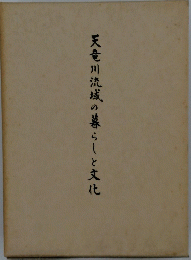 天竜川流域の暮らしと文化